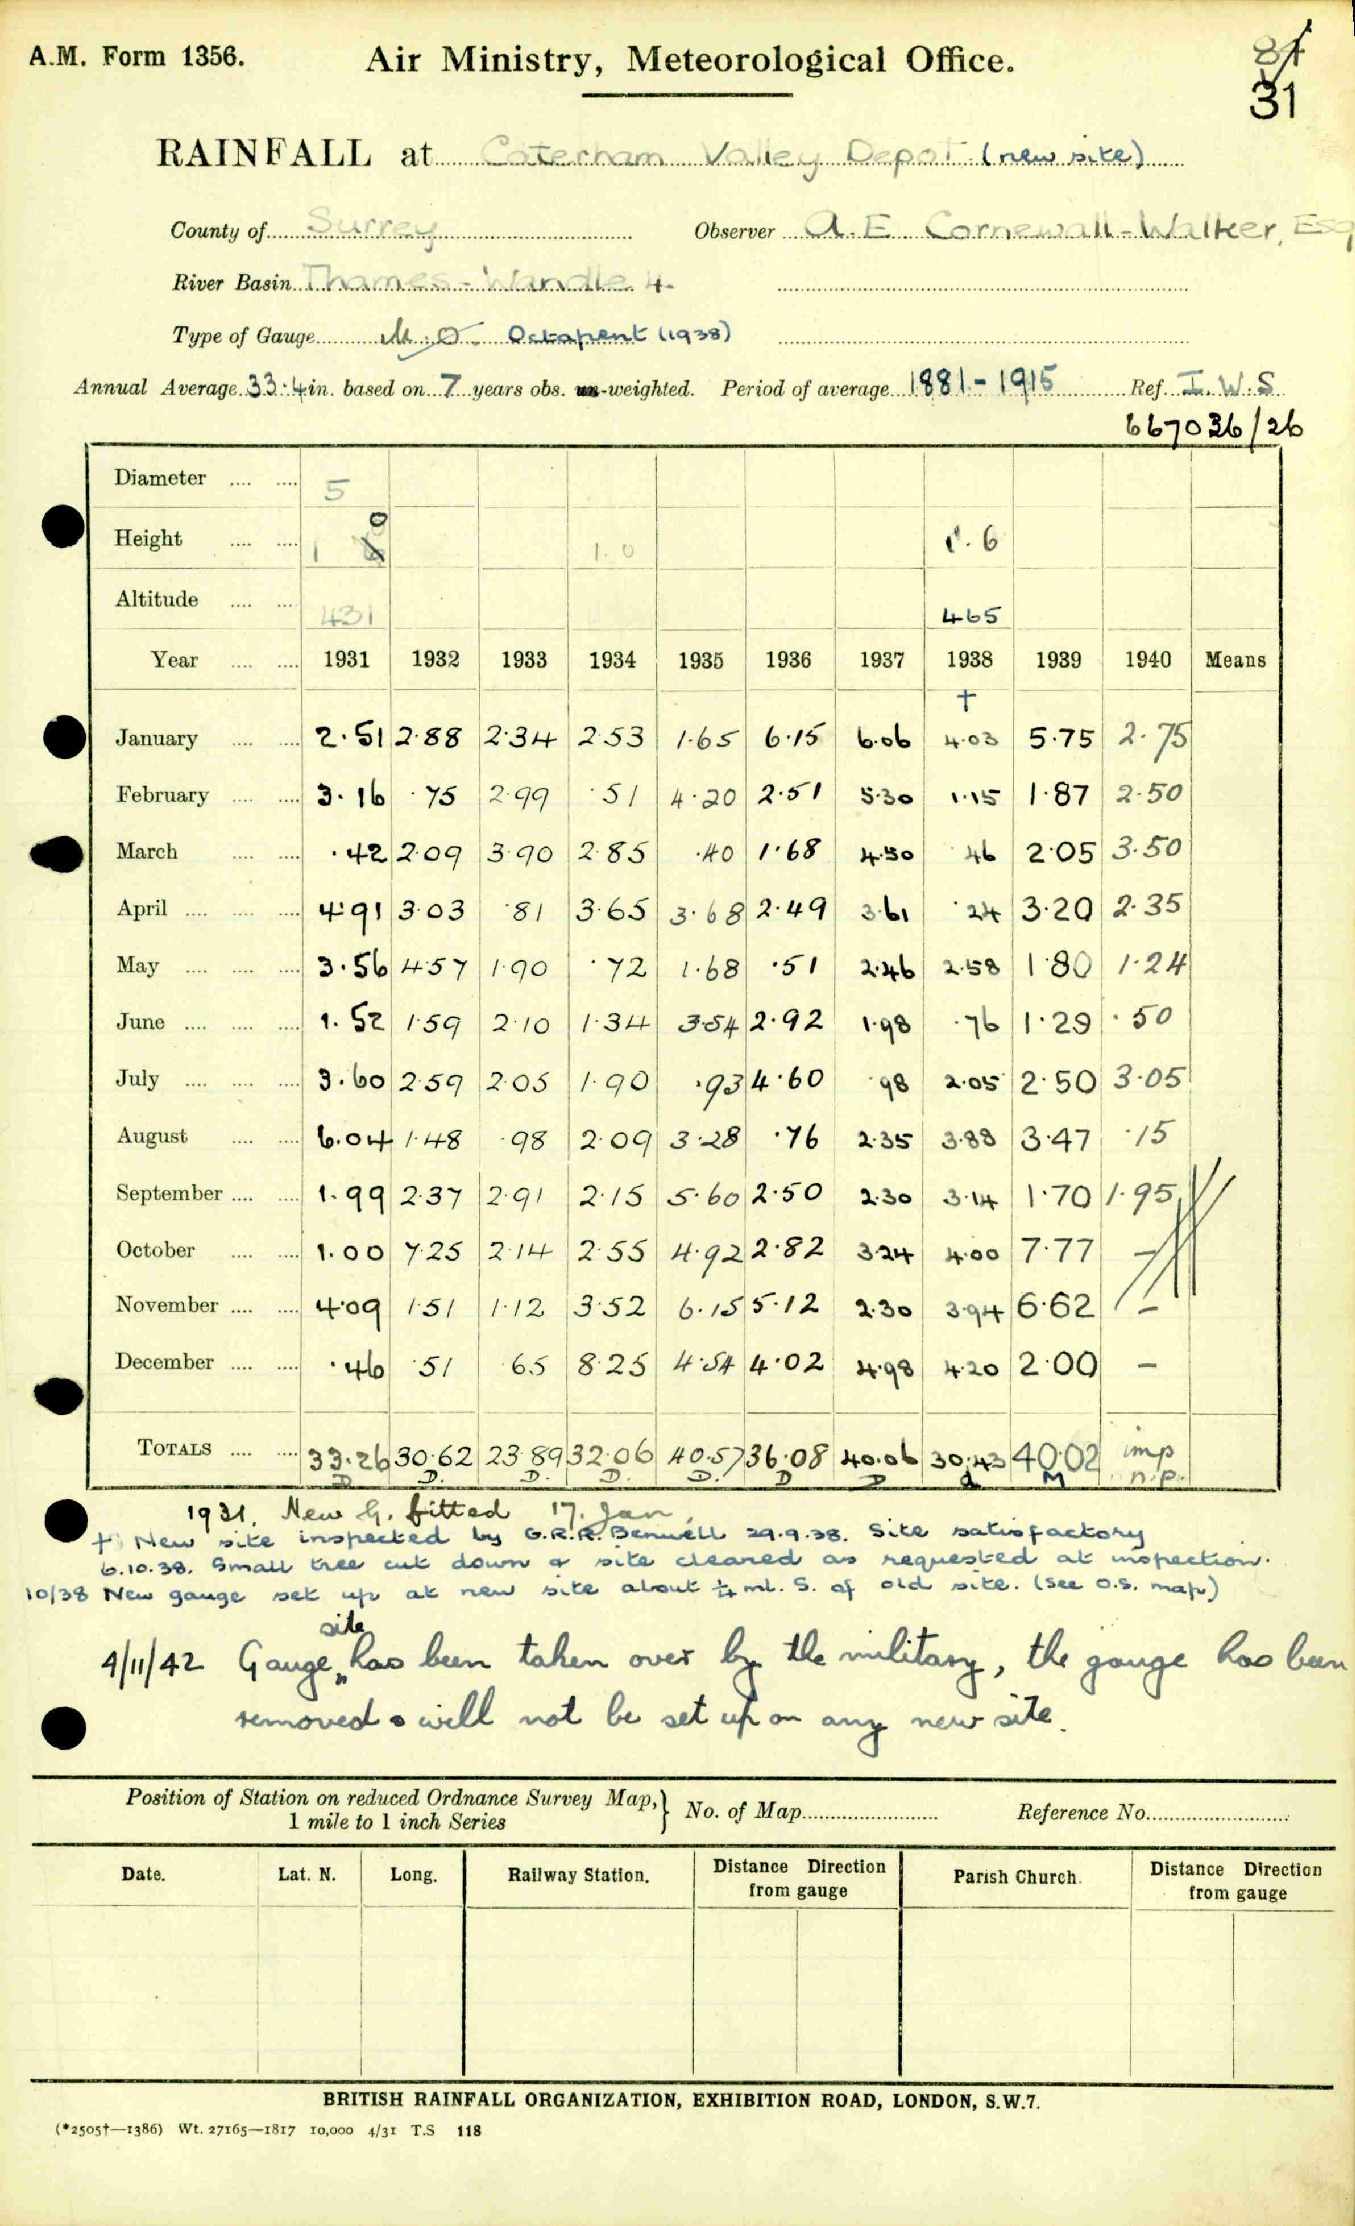 A.M. Form 1356. Air Ministry, Meteorological Office.
31
RAINFALL at Caterham Valley Depot (new site)
County of Surrey Observer A.E. Cornewall-Walker, Esq
River Basin Thames - Wandle 4.
Type of Gauge M.O. Octapent (1938)
Annual Average 33.4 in. based on 7 years obs. un-weighted. Period of average 1881-1915 Ref. I.W.S
667036/26
Diameter .... .... 5
Height .... .... 1 0 1.0 1.6
Altitude .... .... 431 465
Year .... .... 1931 1932 1933 1934 1935 1936 1937 1938 1939 1940 Means
†
January .... .... 2.51 2.88 2.34 2.53 1.65 6.15 6.06 4.03 5.75 2.75
February .... .... 3.16 .75 2.99 .51 4.20 2.51 5.30 1.15 1.87 2.50
March .... .... .42 2.09 3.90 2.85 .40 1.68 4.50 .46 2.05 3.50
April .... .... .... 4.91 3.03 .81 3.65 3.68 2.49 3.61 .24 3.20 2.35
May .... .... .... 3.56 4.57 1.90 .72 1.68 .51 2.46 2.58 1.80 1.24
June .... .... .... 1.52 1.59 2.10 1.34 3.54 2.92 1.98 .76 1.29 .50
July .... .... .... 3.60 2.59 2.05 1.90 .93 4.60 .98 2.05 2.50 3.05
August .... .... 6.04 1.48 .98 2.09 3.28 .76 2.35 3.88 3.47 .15
September .... .... 1.99 2.37 2.91 2.15 5.60 2.50 2.30 3.14 1.70 1.95
October .... .... 1.00 7.25 2.14 2.55 4.92 2.82 3.24 4.00 7.77 -
November .... .... 4.09 1.51 1.12 3.52 6.15 5.12 2.30 3.94 6.62 -
December .... .... .46 .51 .65 8.25 4.54 4.02 4.98 4.20 2.00 -
TOTALS .... .... 33.26 30.62 23.89 32.06 40.57 36.08 40.06 30.43 40.02 imp
D D. D. D. D. D D d M n.p.
1931. New G. fitted 17. Jan.
† New site inspected by G.R.R. Benwell 29.9.38. Site satisfactory
6.10.38. Small tree cut down & site cleared as requested at inspection.
10/38 New gauge set up at new site about ¼ ml. S. of old site. (See O.S. map)
site
4/11/42 Gauge has been taken over by the military, the gauge has been
removed & will not be set up on any new site.
Position of Station on reduced Ordnance Survey Map, 1 mile to 1 inch Series } No. of Map Reference No.
Date. Lat. N. Long. Railway Station. Distance Direction from gauge Parish Church. Distance Direction from gauge
BRITISH RAINFALL ORGANIZATION, EXHIBITION ROAD, LONDON, S.W.7.
(*2505†—1386) Wt. 27165—1817 10,000 4/31 T.S 118